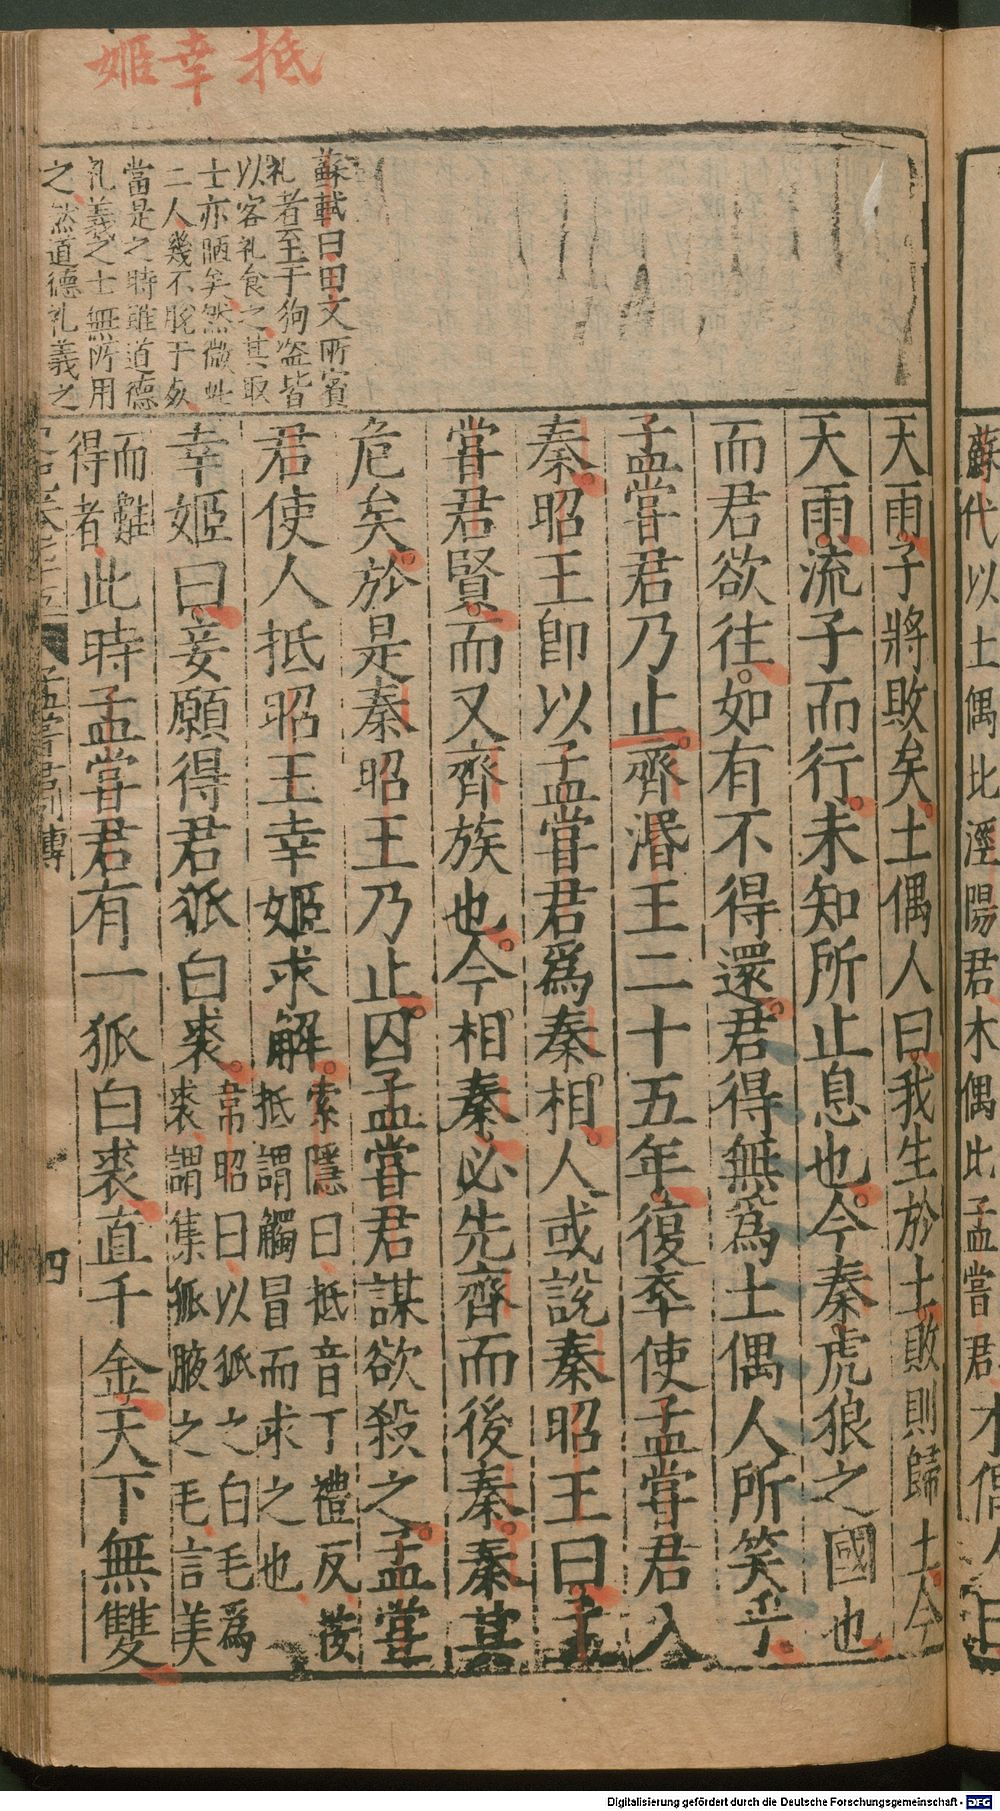 抵幸姬
蘇軾曰田文所賓
礼者至于狗盗皆
以客礼食之其取
士亦陋矣然微此
二人幾不脫于死
當是之時雖道德
礼義之士無所用
之然道德礼義之
天雨子將敗矣土偶人曰我生於土敗則歸土今
天雨流子而行未知所止息也今秦虎狼之國也
而君欲往如有不得還君得無爲土偶人所笑乎
孟嘗君乃止齊湣王二十五年復卒使孟嘗君入
秦昭王卽以孟嘗君爲秦相人或說秦昭王曰孟
嘗君賢而又齊族也今相秦必先齊而後秦秦其
危矣於是秦昭王乃止囚孟嘗君謀欲殺之孟嘗
君使人抵昭王幸姬求解
索隱曰抵音丁禮反按
抵謂觸冒而求之也
幸姬曰妾願得君狐白裘
韋昭曰以狐之白毛爲
裘謂集狐腋之毛言美
而難
得者
此時孟嘗君有一狐白裘直千金天下無雙
孟嘗君列傳
四
蘇代以土偶比涇陽君木偶比孟嘗君木偶人曰
Digitalisierung gefördert durch die Deutsche Forschungsgemeinschaft - DFG